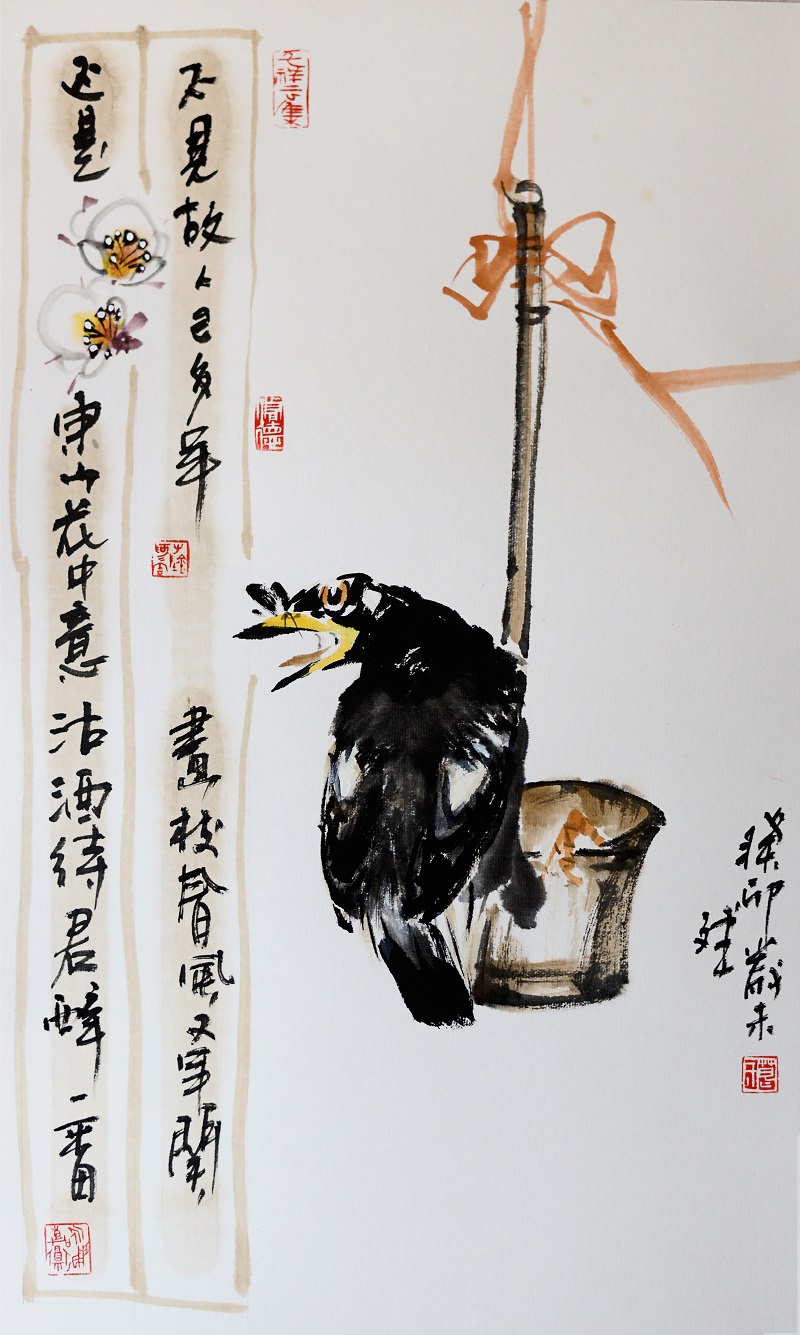 不見故人已多年 畫枝春風又年開
还是 東山花中意 沽酒待君醉一番
癸卯歲末